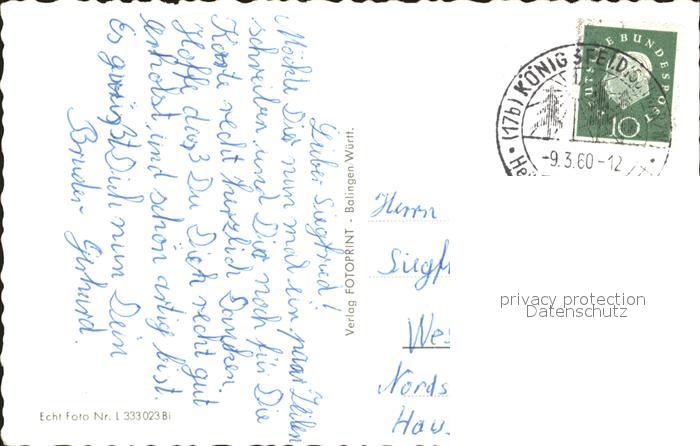 Lieber Siegfried!
Möchte Dir nun mal ein paar Zeilen
schreiben, und Dir noch für Die
Karte recht herzlich Danken.
Hoffe das3 Du Dich recht gut
erholst, und schön artig bist.
Es grüßt Dich nun Dein
Bruder Gerhard.
Echt Foto Nr. L 333023 Bi
Verlag FOTOPRINT - Balingen Württ.
DEUTSCHE BUNDESPOST
10
(17b) KÖNIGSFELD
-9.3.60-12
Herrn
Siegf
Wes
Nords
Hau
privacy protection
Datenschutz